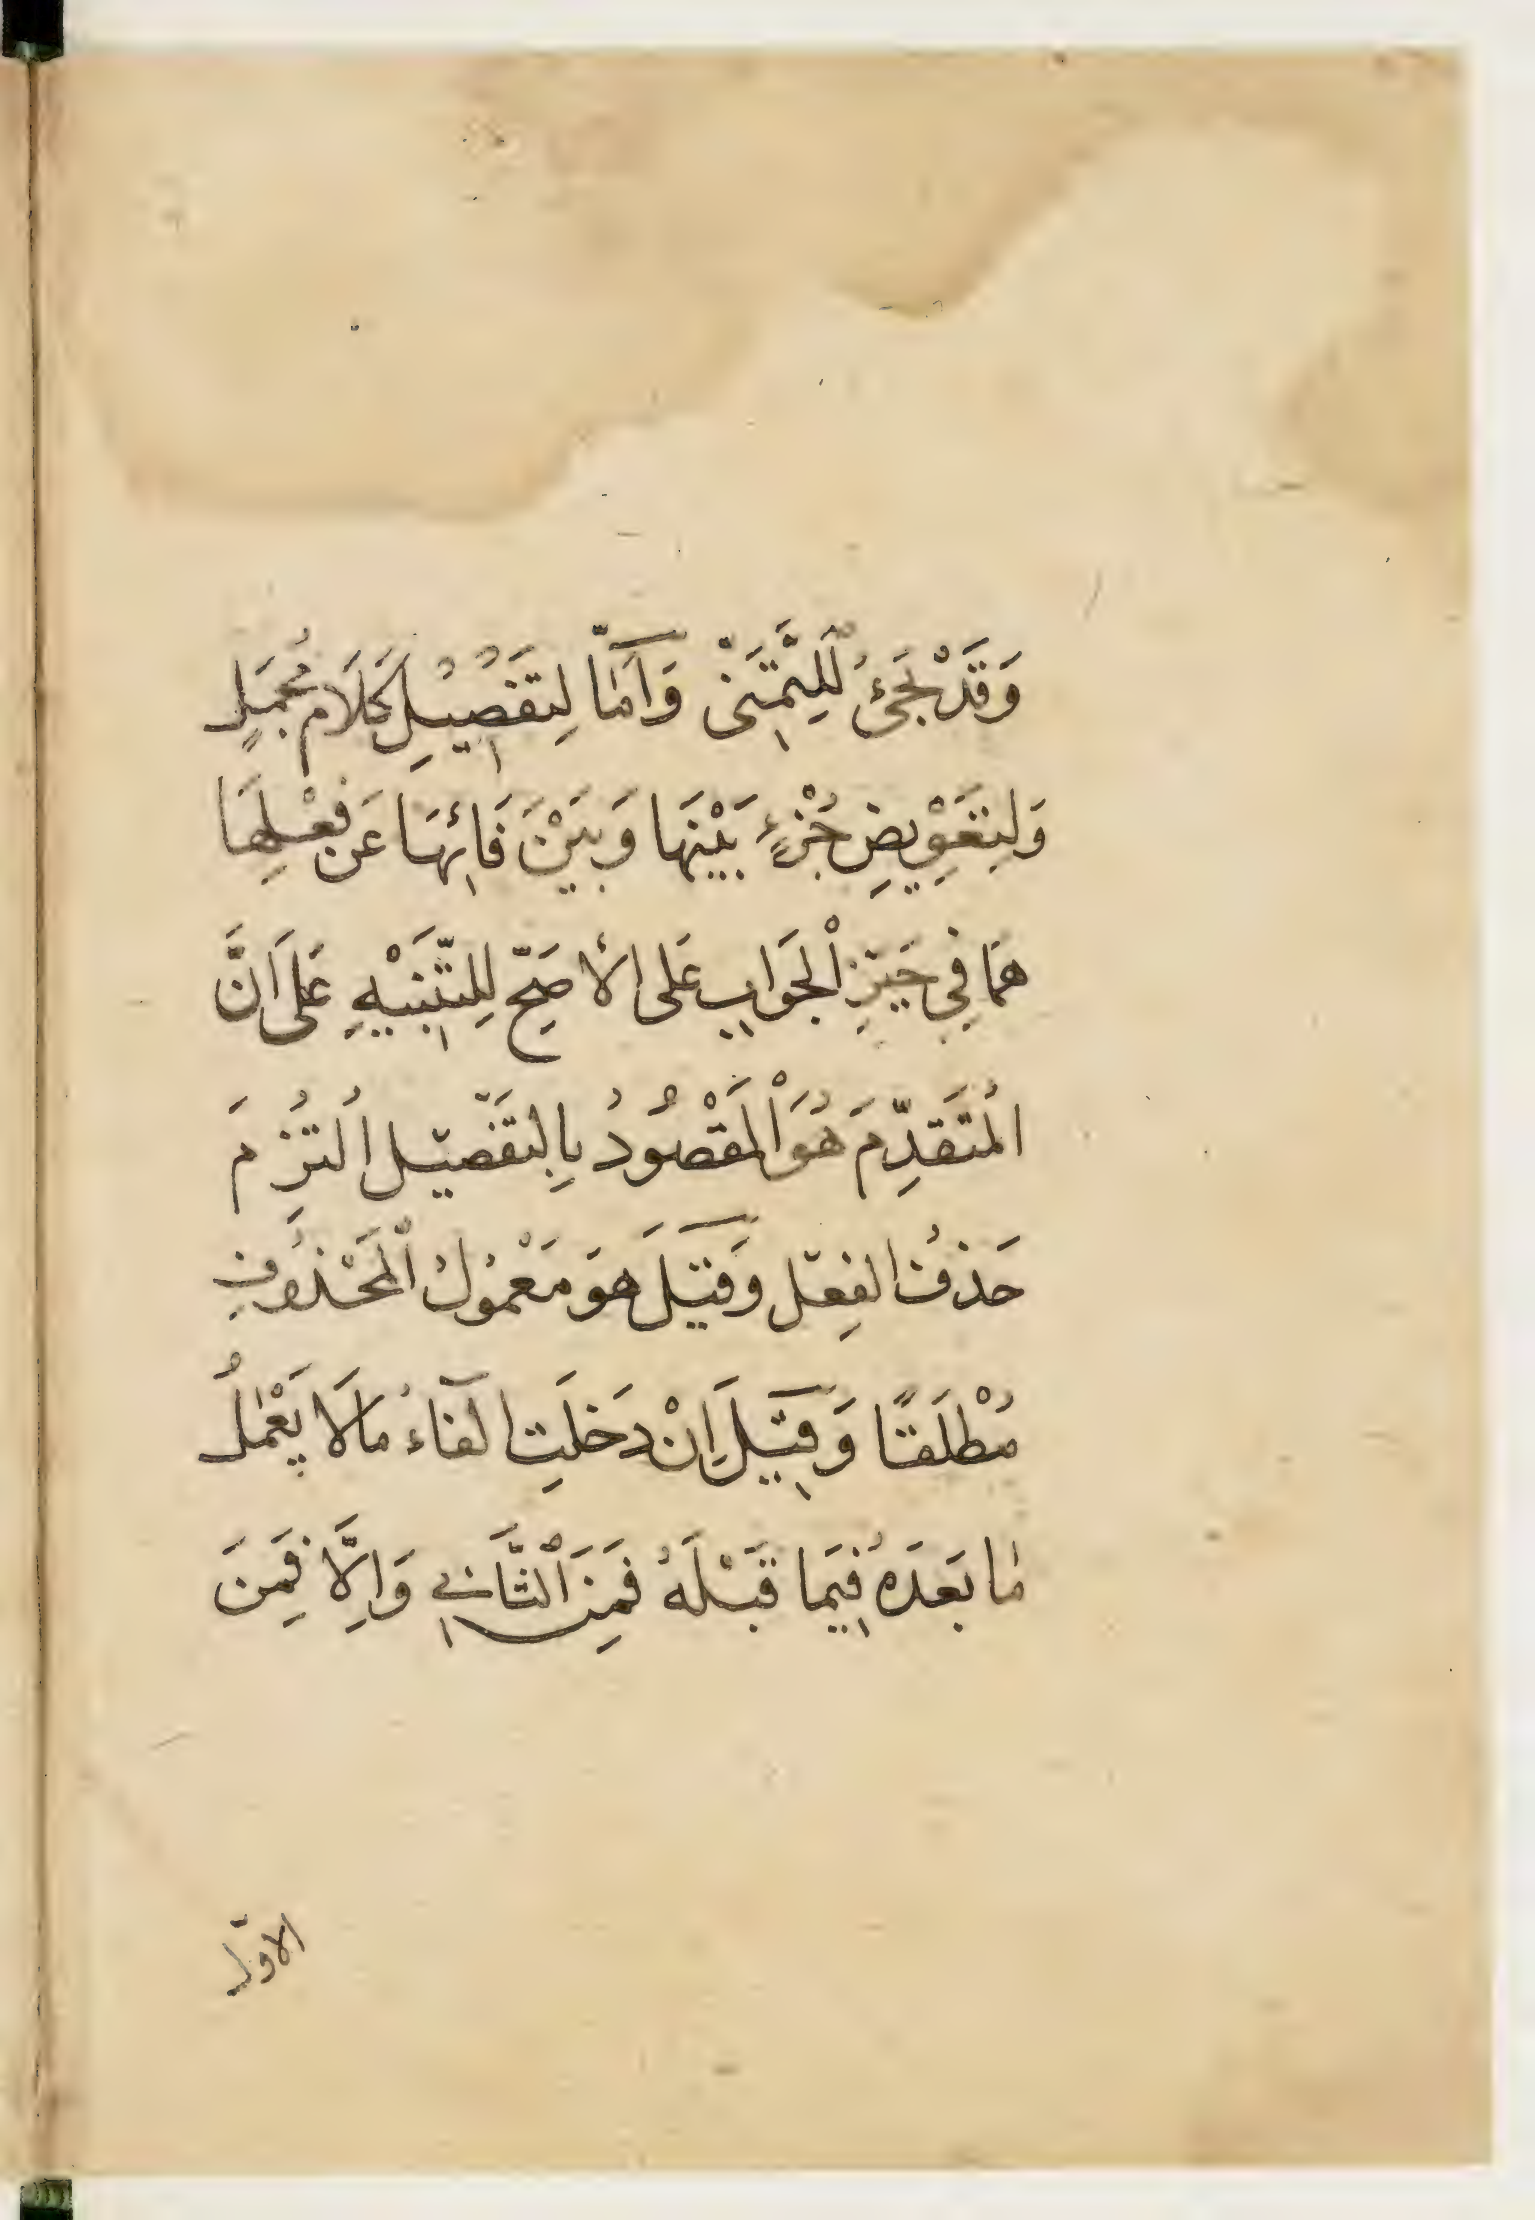 وَقَدْ يَجِئُ لِلتَّمَنّى وَاَمّا لِتَفْصِيْلِ كَلَامٍ مُجْمَلٍ
وَلِتَعْوِيضِ جُزْءٍ بَيْنَهَا وَبَيْنَ فَائِهَا عَن فِعْلِهَا
هَمَا فِي حَيّزِ الْجَوَابِ عَلى الأصَحّ لِلتَّنْبَيْهِ عَلى اَنَّ
المُتَقَدِّمَ هُوَ الْمَقْصُودُ بِالتَفْصيْل اُلتُزِمَ
حَذفُ الفِعْل وَقيْلَ هوَ مَعْمُولُ الْمَحْذُوفِ
مُطْلَقًا وَقِيْلَ اِنْ دَخلَتِ الفَاءُ مالَا يَعْمَلُ
مَا بَعدَهُ فِيَما قَبْلَهُ فَمِنَ الْثَّانِي وَاِلَّا فَمِنَ
الاوّل